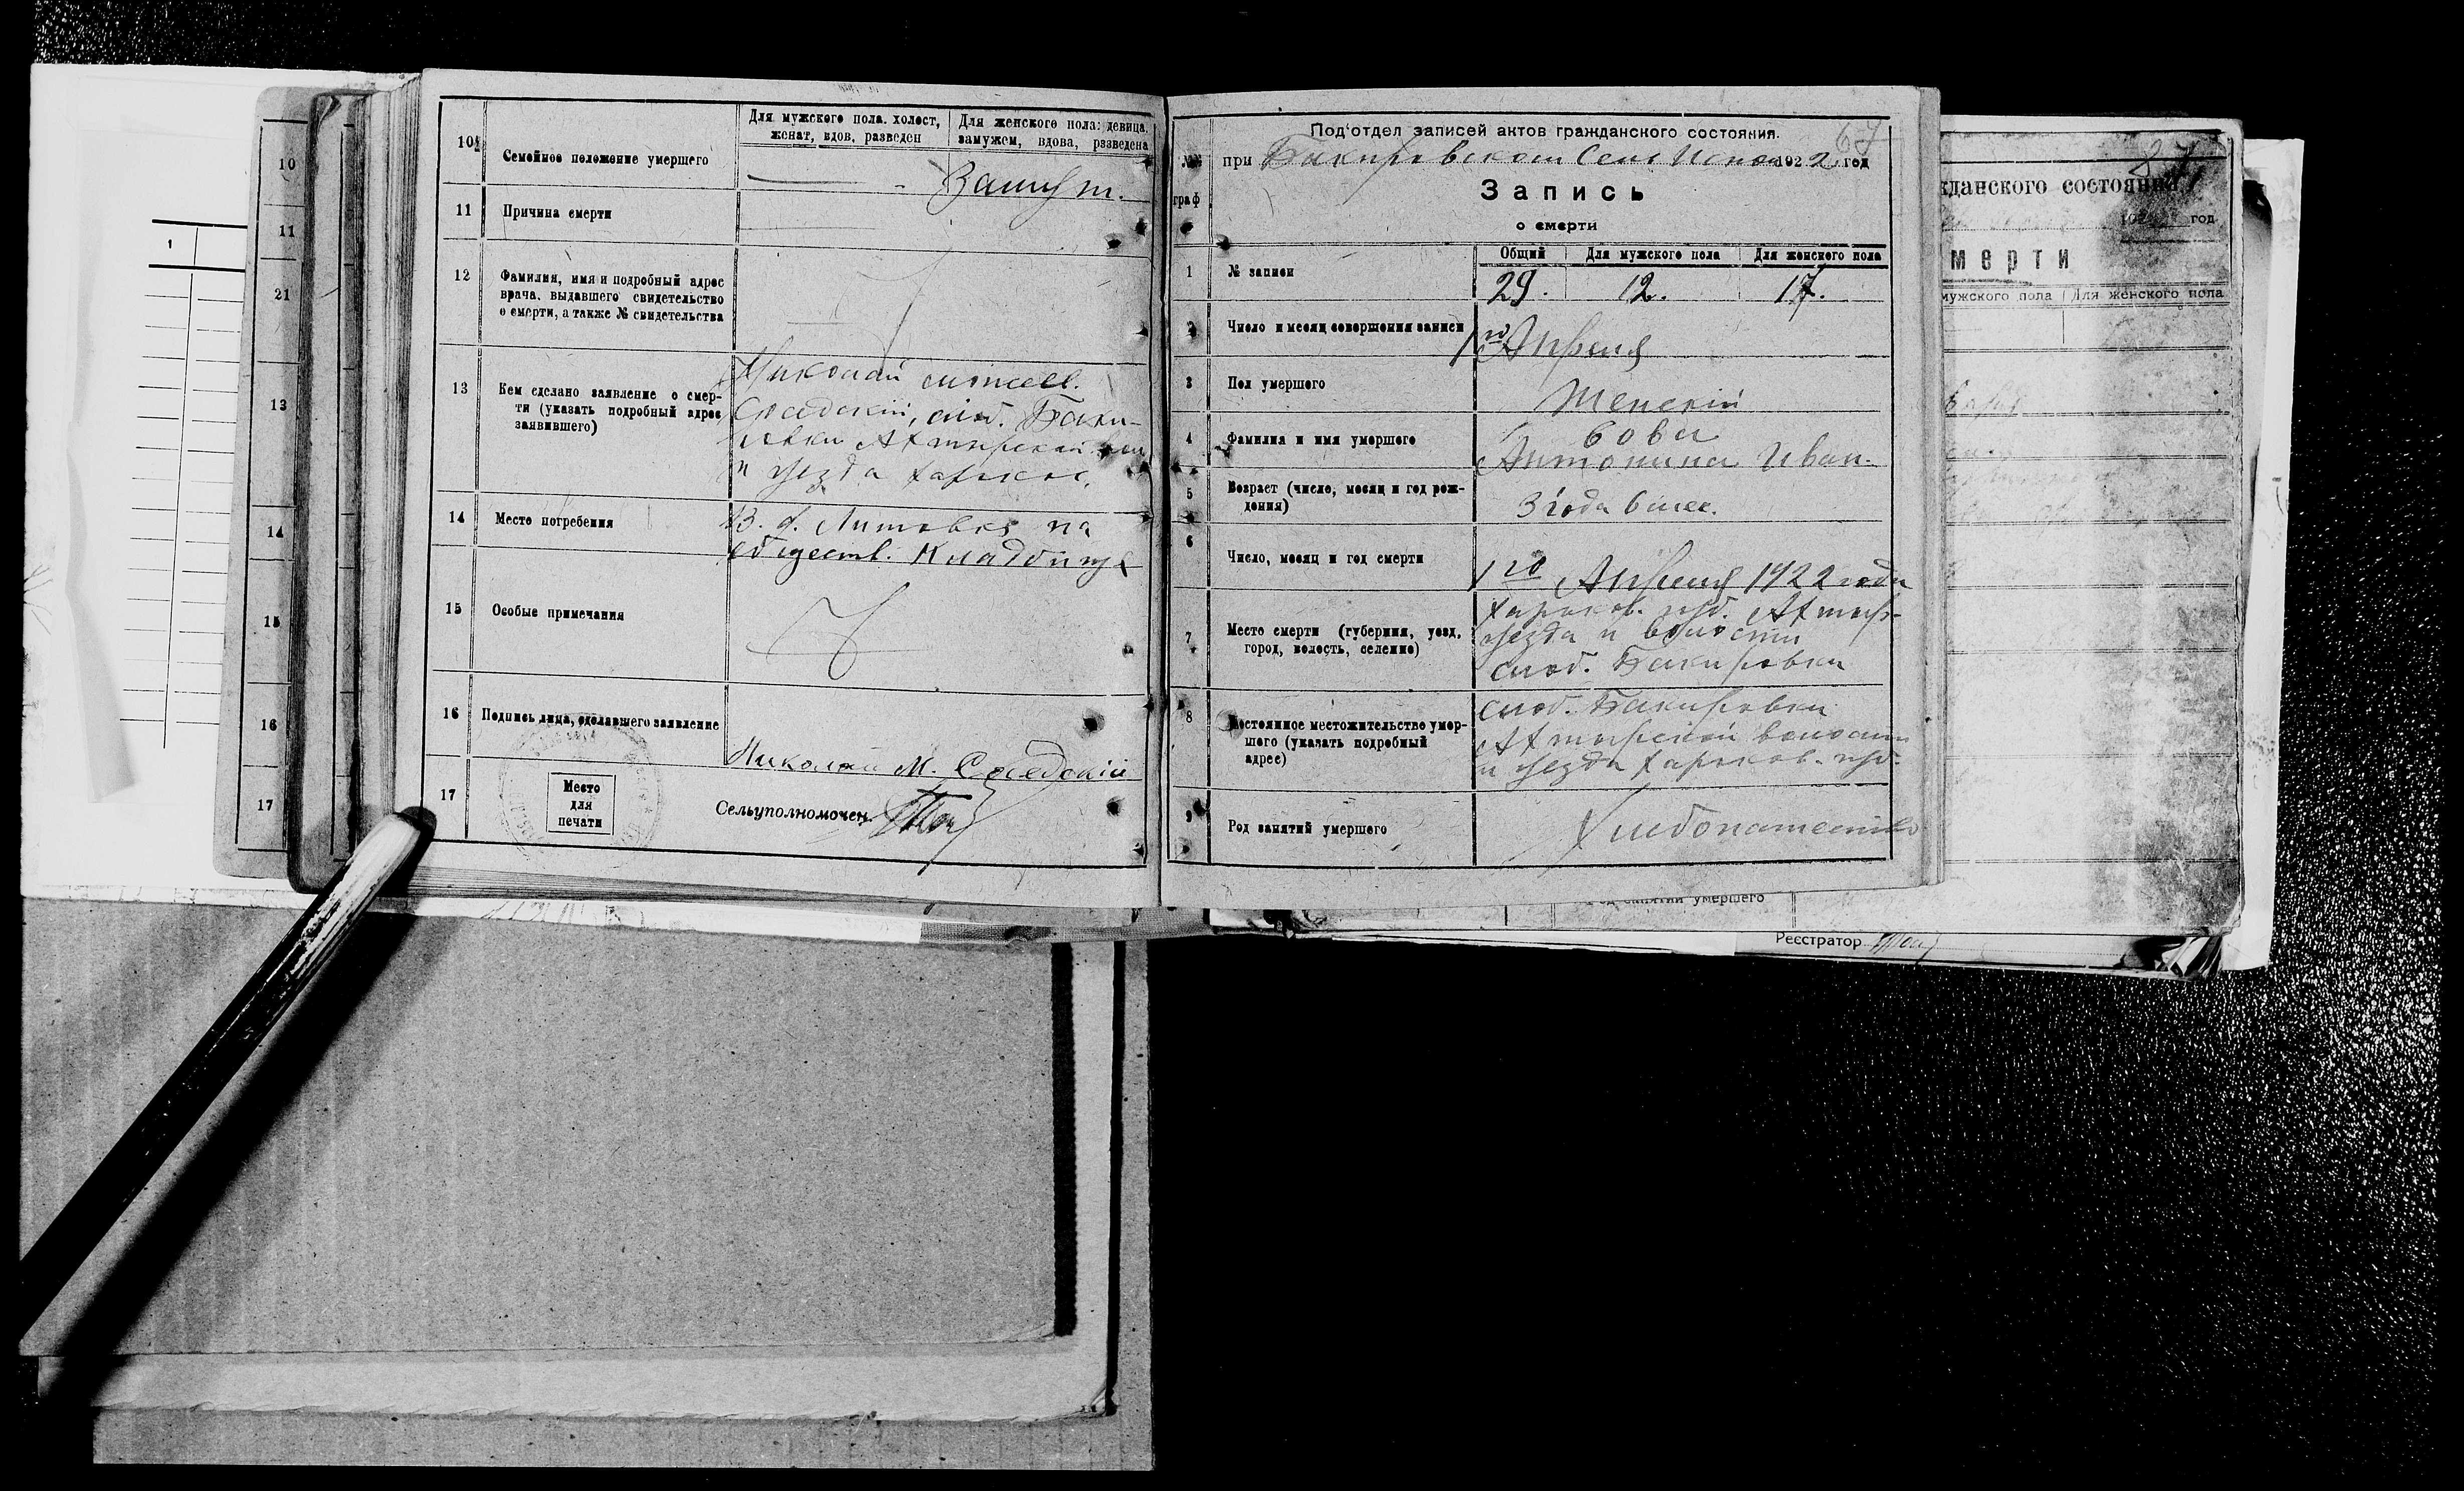 10
Семейное положение умершего
Для мужского пола: холост,
женат, вдов, разведен
Для женского пола: девица,
замужем, вдова, разведена
Замуж.
11
Причина смерти
12
Фамилия, имя и подробный адрес
врача, выдавшего свидетельство
о смерти, а также № свидетельства
13
Кем сделано заявление о смер-
ти (указать подробный адрес
заявившего)
Николай
слоб. Баки-
ровки Ахтырской
и уезда Харьков.
14
Место погребения
В с. Литовке на
обществ. кладбище
15
Особые примечания
16
Подпись лица, сделавшего заявление
Николай М. Соседский
17
Место
для
печати
Сельуполномочен.
67
Под'отдел записей актов гражданского состояния.
№№
граф
при Бакировском Сель Исполк 1922 год
Запись
о смерти
1
№ записи
Общий
Для мужского пола
Для женского пола
29.
12.
17.
2
Число и месяц совершения записи
1го Апреля
3
Пол умершего
Женский
4
Фамилия и имя умершего
Бова
Антонина Иван.
5
Возраст (число, месяц и год рож-
дения)
3 года 6 мес.
6
Число, месяц и год смерти
1го Апреля 1922 года
7
Место смерти (губерния, уезд,
город, волость, селение)
Харьков. губ. Ахтыр.
уезда и волости
слоб. Бакировки
8
Постоянное местожительство умер-
шего (указать подробный
адрес)
слоб. Бакировки
Ахтырской волости
и уезда Харьков. губ.
9
Род занятий умершего
Хлебопашество
10
11
21
13
14
15
16
17
1
жданского состояния
год
мерти
мужского пола
Для женского пола
Род занятий умершего
Реєстратор